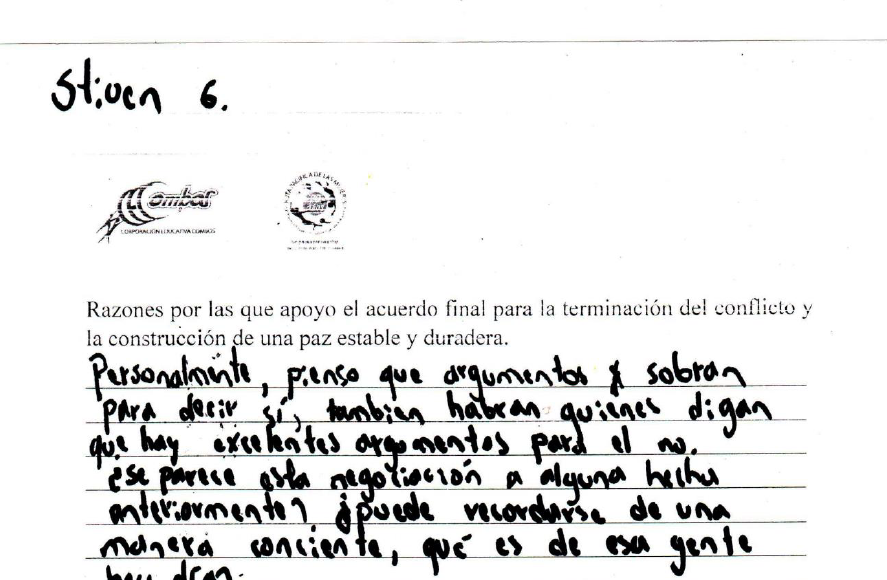 Stiven G.
Combos
CORPORACIÓN EDUCATIVA COMBOS
PACIFICA DE LAS
Razones por las que apoyo el acuerdo final para la terminación del conflicto y
la construcción de una paz estable y duradera.
Personalmente, pienso que argumentos sobran
para decir sí, tambien habran quienes digan
que hay excelentes argumentos para el no.
¿se parece esta negociación a alguna hecha
anteriormente? ¿puede recordarse de una
manera conciente, qué es de esa gente
hoy dran